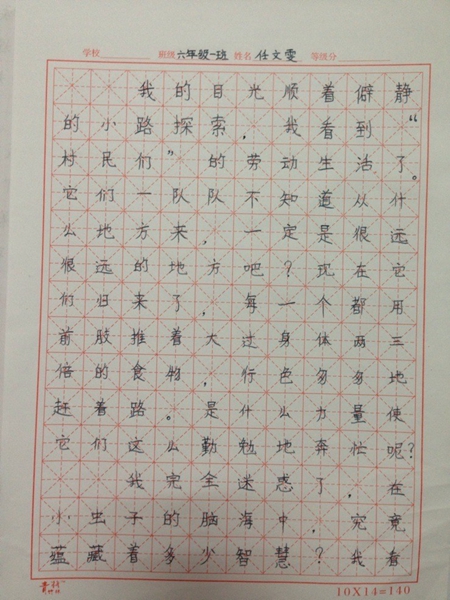 学校 班级 六年级一班 姓名 任文雯 等级分
我的目光顺着僻静
的小路探索，我看到“
村民们”的劳动生活了。
它们一队队不知道从什
么地方来，一定是很远
很远的地方吧？现在它
们归来了，每一个都用
前肢推着大过身体两三
倍的食物，行色匆匆地
赶着路。是什么力量使
它们这么勤勉地奔忙呢？
我完全迷惑了，在
小虫子的脑海中，究竟
蕴藏着多少智慧？我看
10X14=140